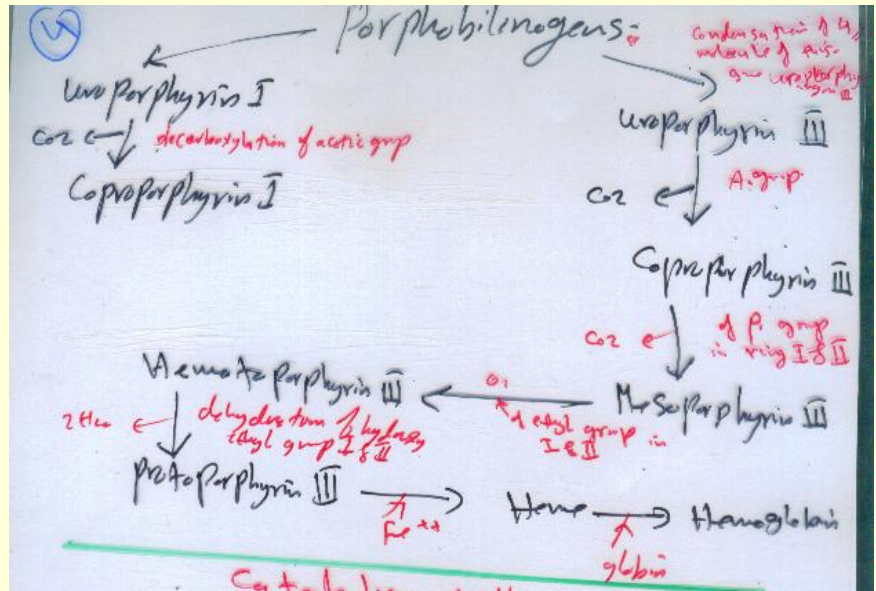 4
Porphobilinogens:
Condensation of 4
molecule of this
give uroporphy
III
Uroporphyrin I
CO2
decarboxylation of acetic grup
Coproporphyrin I
Uroporphyrin III
CO2
A. grup
Coproporphyrin III
CO2
of P. group
in ring I & II
Mesoporphyrin III
O2
of ethyl group in
I & II
Hematoporphyrin III
2H2O
dehydration of hydroxy
ethyl group I & II
protoporphyrin III
Fe++
Heme
globin
Hemoglobin